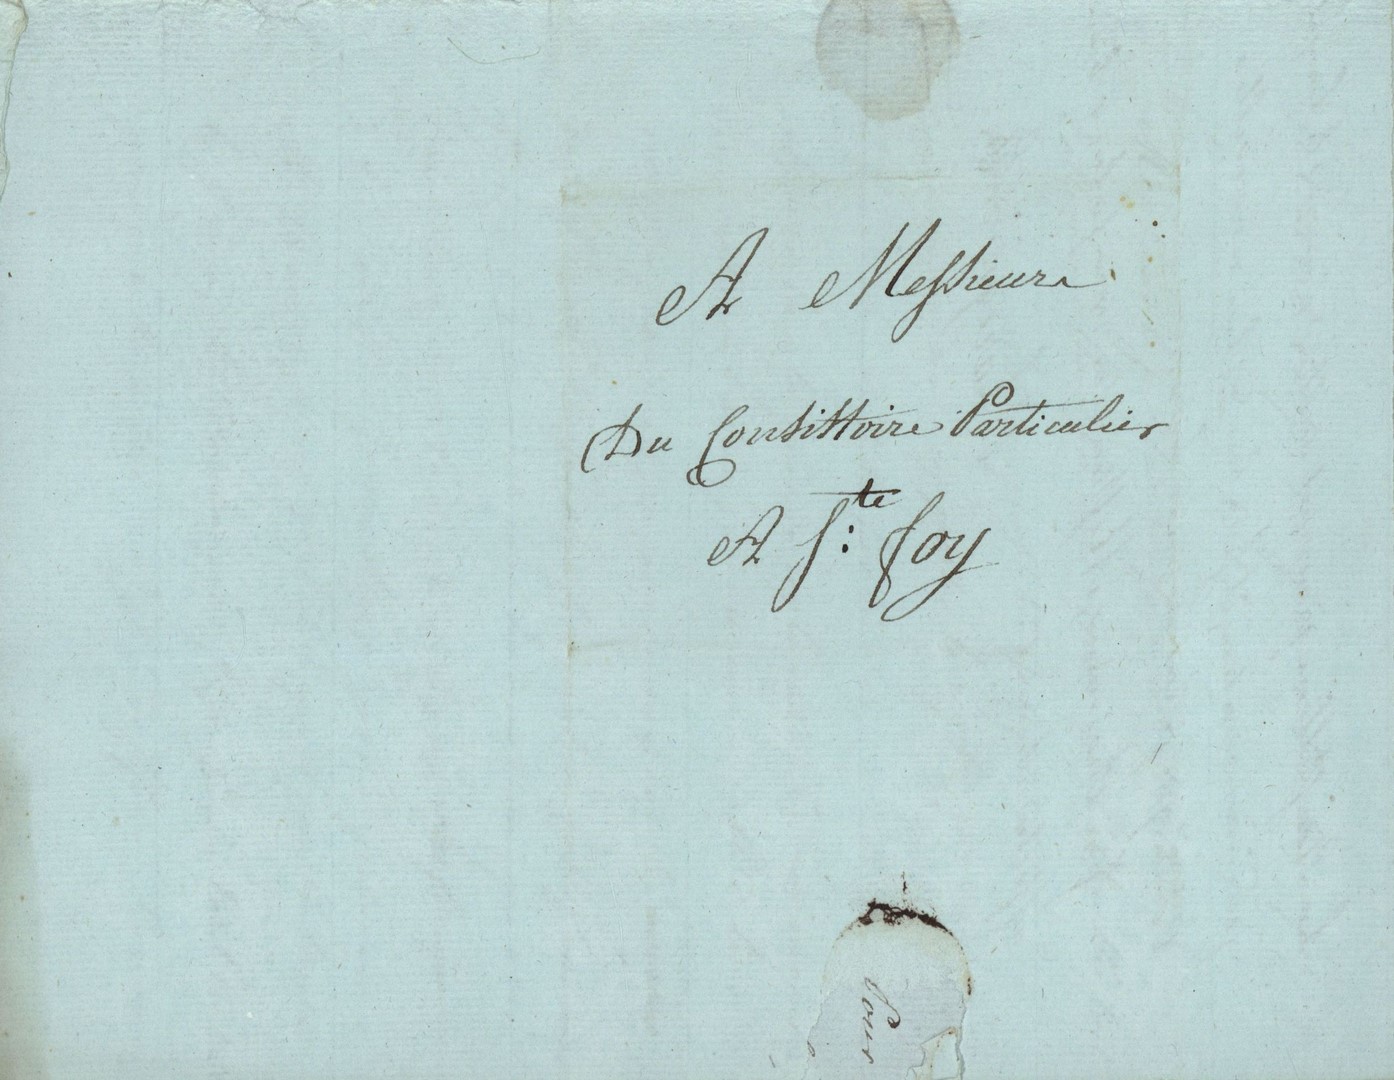 A Messieurs
Du Consistoire Particulier
A S:te foy
Pour